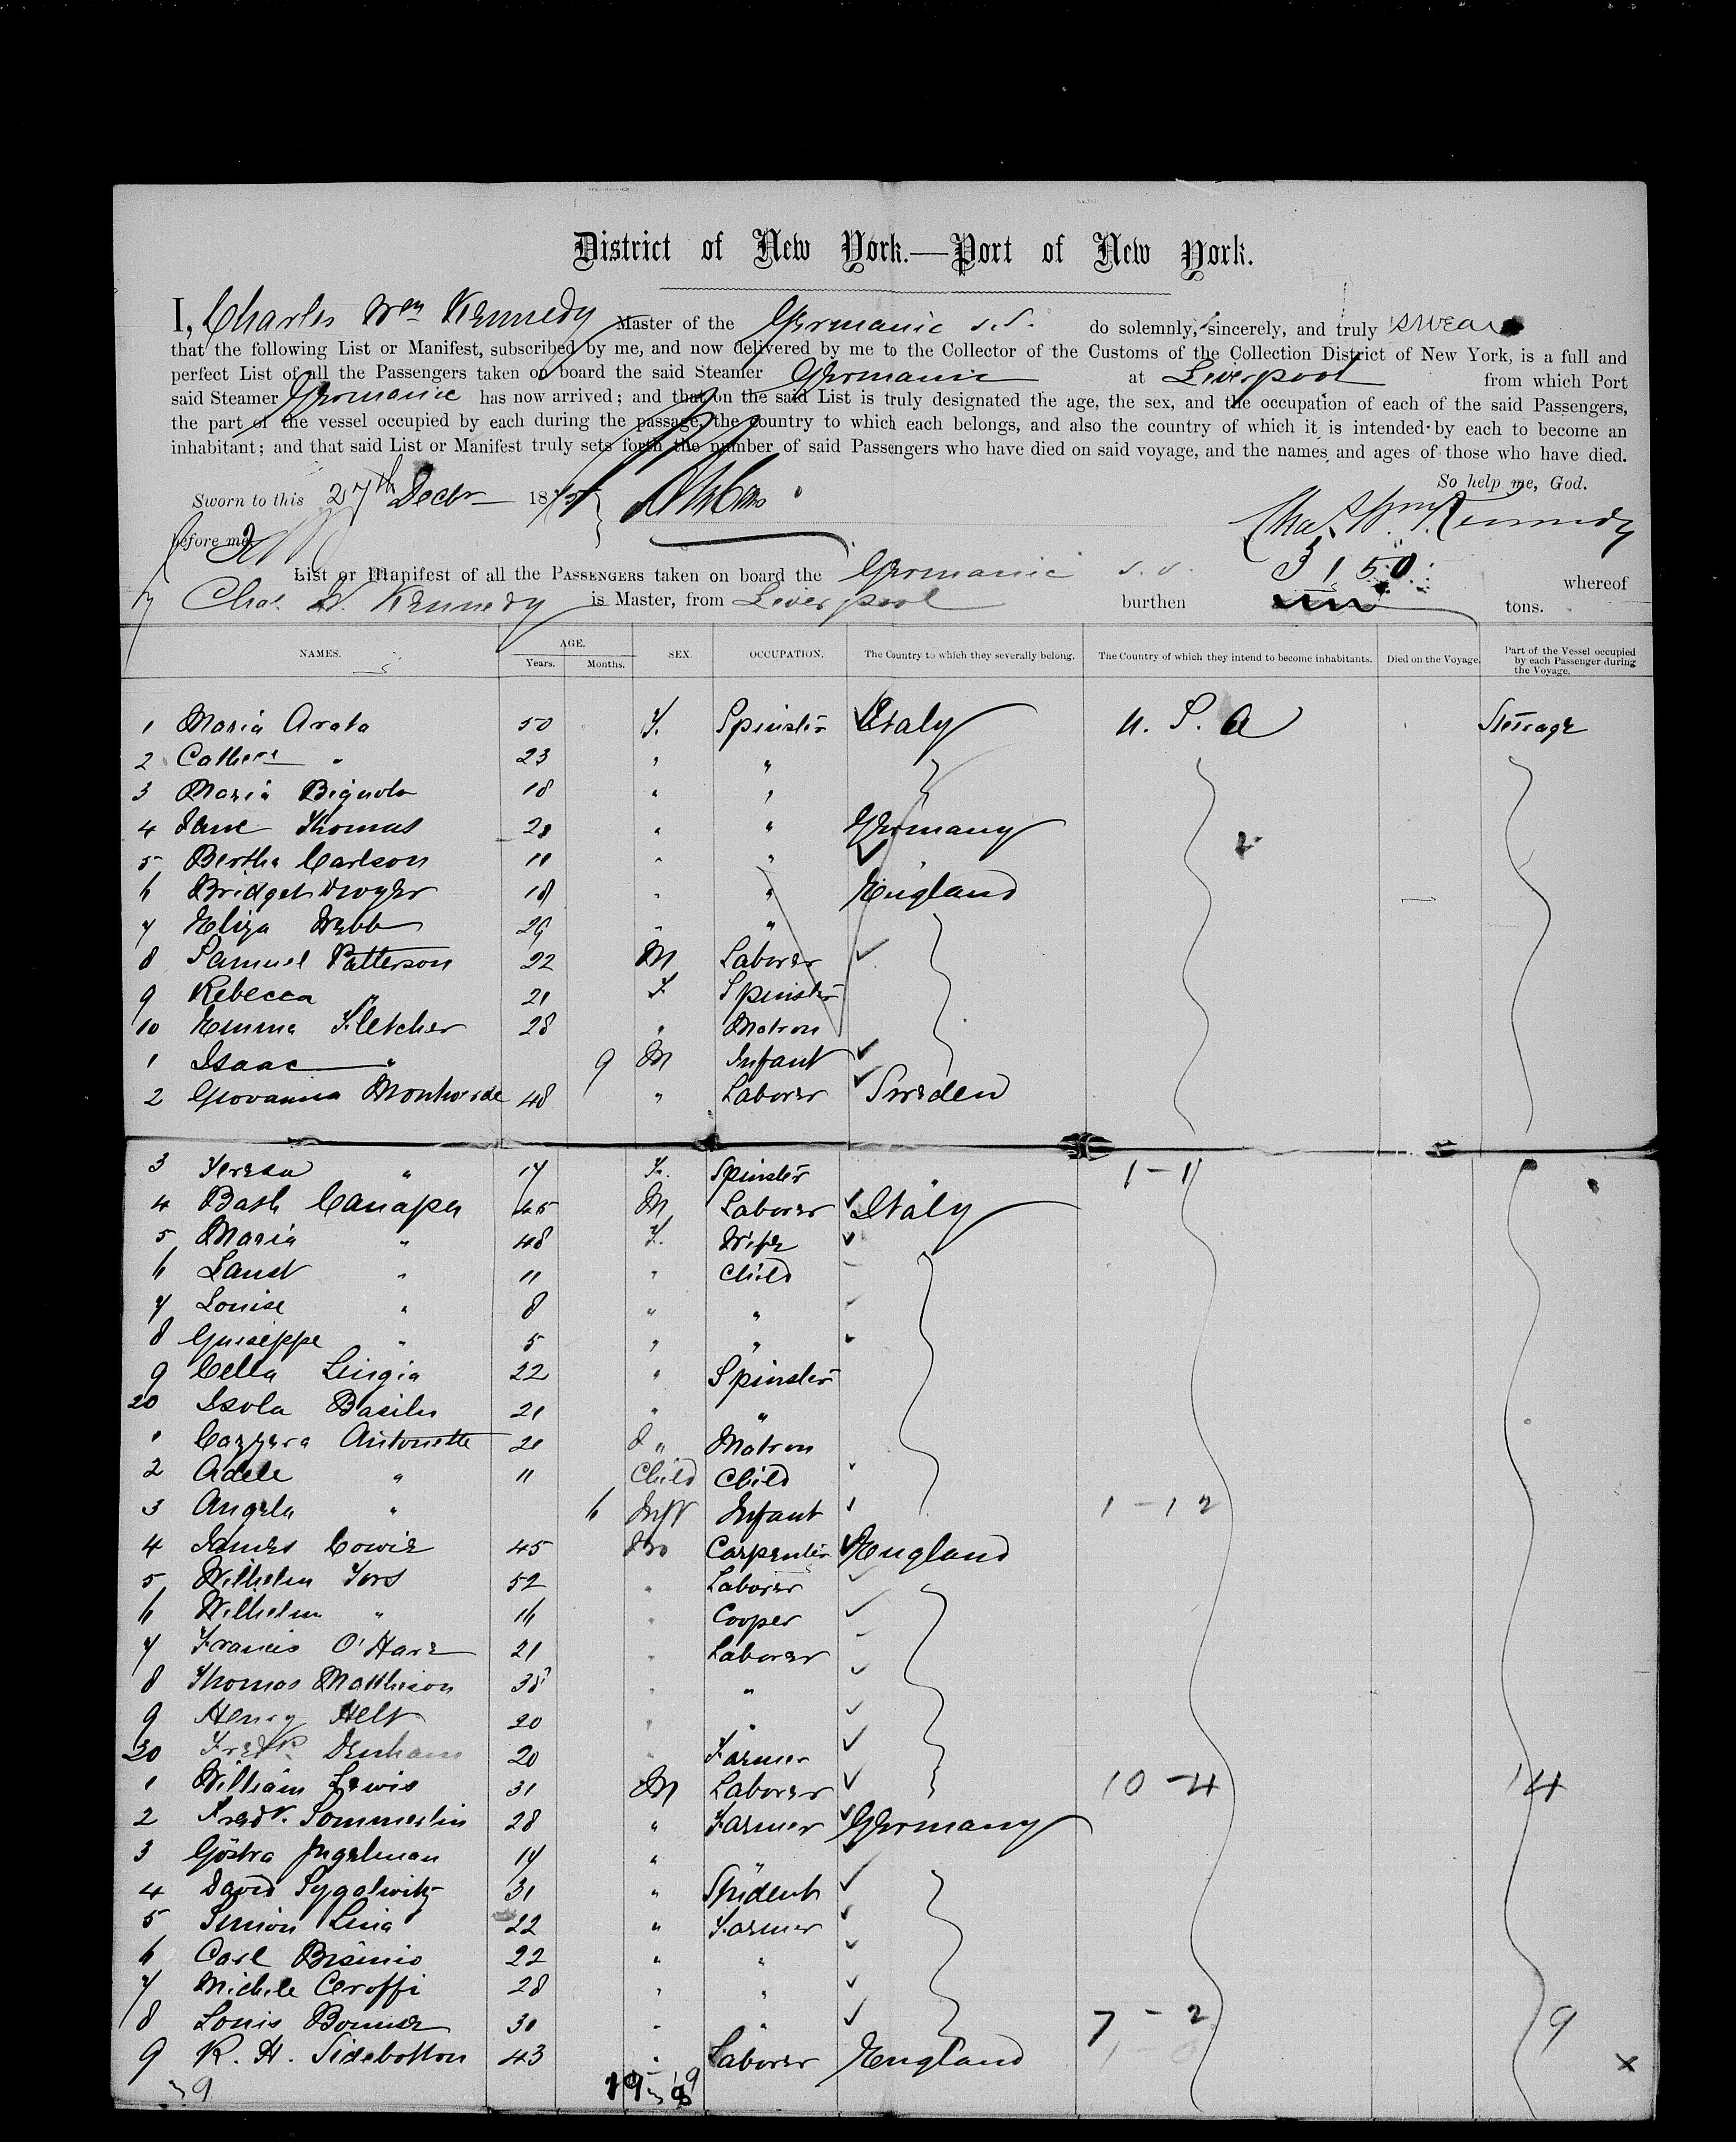 District of New York.—Port of New York.
I, Charles Wm Kennedy Master of the Germanic s.s. do solemnly, sincerely, and truly swear
that the following List or Manifest, subscribed by me, and now delivered by me to the Collector of the Customs of the Collection District of New York, is a full and
perfect List of all the Passengers taken on board the said Steamer Germanic at Liverpool from which Port
said Steamer Germanic has now arrived; and that on the said List is truly designated the age, the sex, and the occupation of each of the said Passengers,
the part of the vessel occupied by each during the passage, the country to which each belongs, and also the country of which it is intended by each to become an
inhabitant; and that said List or Manifest truly sets forth the number of said Passengers who have died on said voyage, and the names and ages of those who have died.
So help me, God.
Sworn to this 27th Decbr 187
Chas Wm Kennedy
before me
List or Manifest of all the PASSENGERS taken on board the Germanic s.s. 3150 whereof
Chas. W. Kennedy is Master, from Liverpool burthen tons.
NAMES. AGE. Years. Months. SEX. OCCUPATION. The Country to which they severally belong. The Country of which they intend to become inhabitants. Died on the Voyage. Part of the Vessel occupied by each Passenger during the Voyage.
1 Maria Arata 50 F. Spinster Italy U. S. A Steerage
2 " 23 " "
3 Maria Bignola 18 " "
4 Jane Thomas 28 " " Germany
5 Bertha Carlson " "
6 Bridget Dwyer 18 " " England
7 Eliza Webb 29 " "
8 Samuel Patterson 22 M Laborer
9 Rebecca " 21 F Spinster
10 Emma Fletcher 28 " Matron
1 Isaac " 9 M Infant
2 Giovanina 48 " Laborer Sweden
3 Teresa " 17 F. Spinster 1-1
4 Bath Canapa 45 M Laborer Italy
5 Maria " 48 F. Wife
6 " 11 " Child
7 Louise " 8 " "
8 Guiseppe " 5 " "
9 Cella Luigia 22 " Spinster
20 Isola 21 " "
1 Cazzera Antonette 21 " Matron
2 Adele " 11 Child Child
3 Angela " 6 Inft Infant 1-12
4 James Cowie 45 Carpenter England
5 Wilhelm 52 " Laborer
6 Wilhelm " 16 " Cooper
7 Francis O'Hare 21 " Laborer
8 Thomas Matthison 38 " "
9 Henry Helt 20 " "
30 Fredk Denham 20 " Farmer
1 William Lewis 31 M Laborer 10-4 14
2 Fredk. Sommerlin 28 " Farmer Germany
3 Göstra Ingelman 17 "
4 David 31 " Student
5 Simon Lina 22 " Farmer
6 Carl 22 " "
7 Michele Ceroffi 28 " "
8 Louis Bonner 30 " " 7-2 9
9 R. H. Sidebotton 43 " Laborer England x